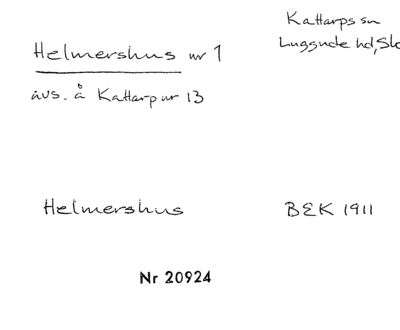 Kattarps sn
Helmershus nr 1
Luggude hd, Sk
avs. å Kattarp nr 13
Helmershus
BEK 1911
Nr 20924